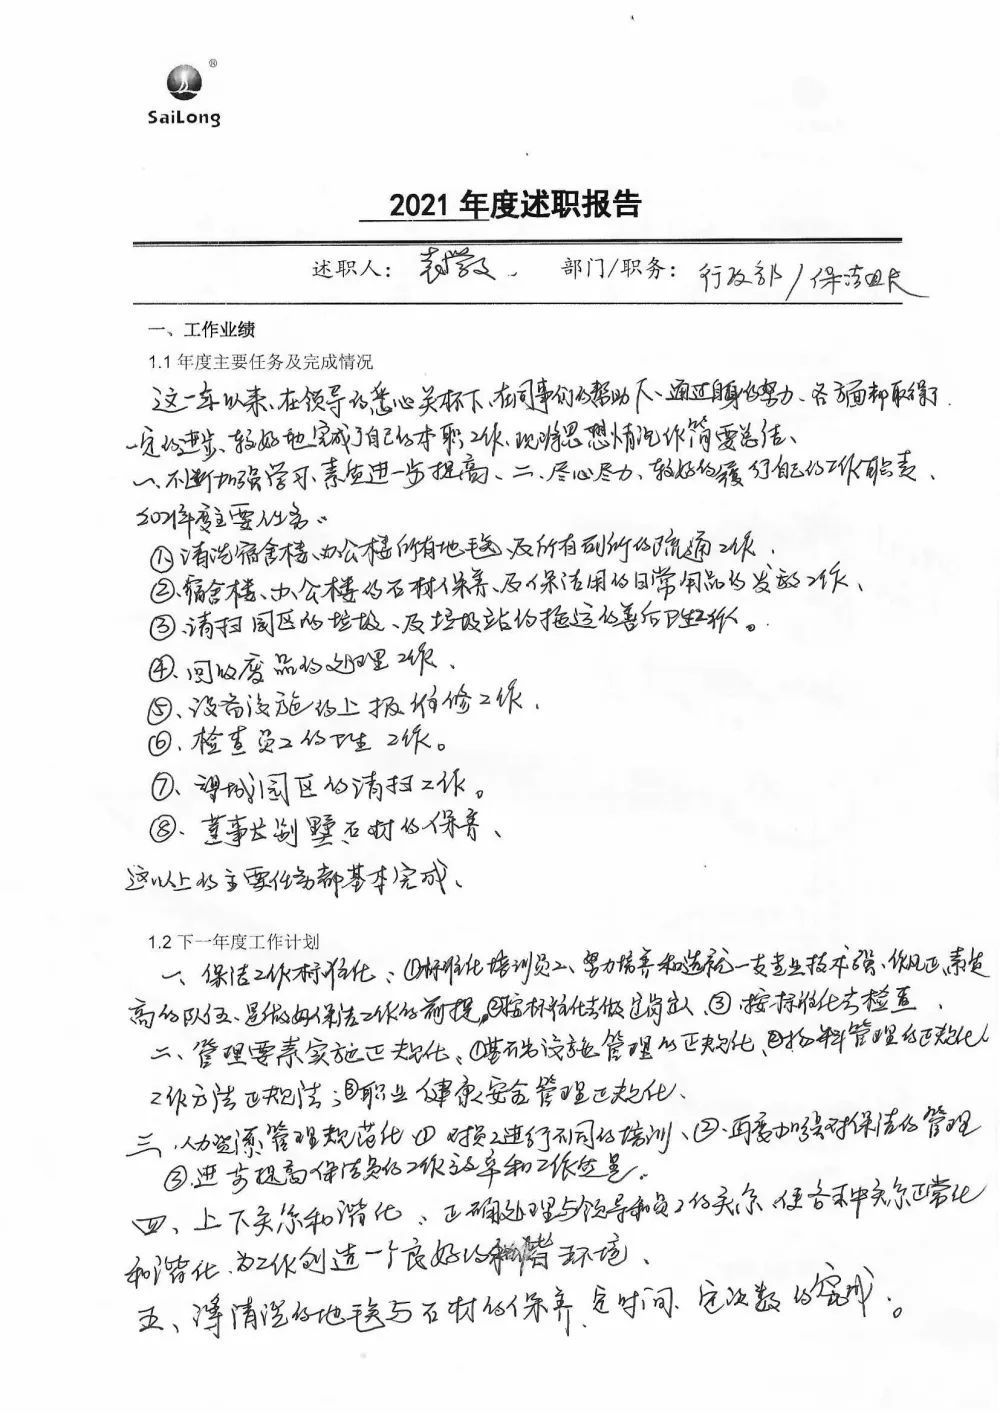 ®
SaiLong
2021 年度述职报告
述职人：袁学文. 部门/职务：行政部/保洁班长
一、工作业绩
1.1 年度主要任务及完成情况
这一年以来、在领导的悉心关怀下、在同事们的帮助下、通过自身的努力、各方面都取得了
一定的进步、较好地完成了自己的本职工作、现将思想情况作简要总结、
一、不断加强学习、素质进一步提高、二、尽心尽力、较好的履行自己的工作职责、
2021年度主要任务：
①、清洗宿舍楼、办公楼所有地毯、及所有厕所的疏通工作、
②、宿舍楼、办公楼的石材保养、及保洁用的日常用品的发放工作、
③、清扫园区的垃圾、及垃圾站的拖运的善后卫生工作。
④、回收废品的处理工作、
⑤、设备设施的上报维修工作、
⑥、检查员工的卫生工作。
⑦、望城园区的清扫工作。
⑧、董事长别墅石材的保养、
这以上的主要任务都基本完成、
1.2 下一年度工作计划
一、保洁工作标准化、①标准化培训员工、努力培养和造就一支专业技术强、作风正、素质
高的队伍、是做好保洁工作的前提、②按标准化去做定岗定人、③按标准化去检查、
二、管理要素实施正规化、①基本设施管理的正规化、②物料管理的正规化
工作方法正规法；③职业健康安全管理正规化、
三、人力资源管理规范化①对员工进行不同的培训、②、再度加强对保洁的管理
③、进步提高保洁员的工作效率和工作质量、
四、上下关系和谐化、正确处理与领导和员工的关系、使各未中关系正常化
和谐化、为工作创造一个良好的和谐环境、
五、清洗的地毯与石材的保养、定时间、定次数的完成。